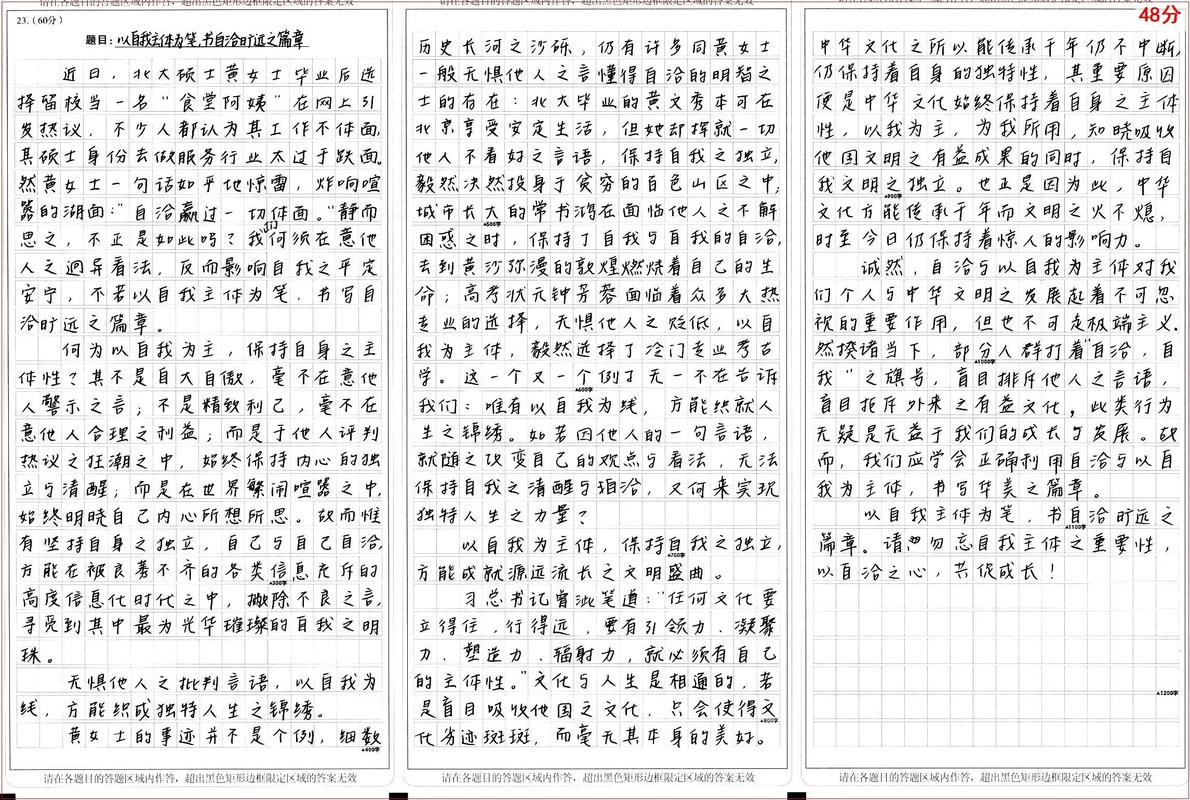 请在各题目的答题区域内作答，超出黑色矩形边框限定区域的答案无效
23.（60分）
题目：以自我主体为笔,书自洽旷远之篇章
近日，北大硕士黄女士毕业后选
择留校当一名“食堂阿姨”在网上引
发热议，不少人都认为其工作不体面,
其硕士身份去做服务行业太过于跌面。
然黄女士一句话如平地惊雷，炸响喧
嚣的湖面：“自洽赢过一切体面。”静而
思之，不正是如此吗？我们何须在意他
人之迥异看法，反而影响自我之平定
安宁，不若以自我主体为笔，书写自
洽旷远之篇章。
何为以自我为主，保持自身之主
体性？其不是自大自傲，毫不在意他
人警示之言；不是精致利己，毫不在
意他人合理之利益；而是于他人评判
热议之狂潮之中，始终保持内心的独
立与清醒；而是在世界繁闹喧嚣之中,
始终明晓自己内心所想所思。故而惟
有坚持自身之独立，自己与自己自洽,
方能在被良莠不齐的各类信息充斥的
▲300字
高度信息化时代之中，撇除不良之言,
寻觅到其中最为光华璀璨的自我之明
珠。
无惧他人之批判言语，以自我为
线，方能织成独特人生之锦绣。
黄女士的事迹并不是个例，细数
▲400字
请在各题目的答题区域内作答，超出黑色矩形边框限定区域的答案无效
请在各题目的答题区域内作答，超出黑色矩形边框限定区域的答案无效
历史长河之沙砾，仍有许多同黄女士
一般无惧他人之言懂得自洽的明智之
士的存在：北大毕业的黄文秀本可在
北京享受安定生活，但她却挥就一切
他人不看好之言语，保持自我之独立,
毅然决然投身于贫穷的百色山区之中;
城市长大的常书鸿在面临他人之不解
▲500字
困惑之时，保持了自我与自我的自洽,
去到黄沙弥漫的敦煌燃烧着自己的生
命；高考状元钟芳蓉面临着众多大热
专业的选择，无惧他人之贬低，以自
我为主体，毅然选择了冷门专业考古
学。这一个又一个例子无一不在告诉
▲600字
我们：唯有以自我为线，方能织就人
生之锦绣。如若因他人的一句言语，
就随之改变自己的观点与看法，无法
保持自我之清醒与自洽，又何来实现
独特人生之力量？
以自我为主体，保持自我之独立,
▲700字
方能成就源远流长之文明盛曲。
习总书记曾泚笔道：“任何文化要
立得住，行得远，要有引领力、凝聚
力、塑造力、辐射力，就必须有自己
的主体性。”文化与人生是相通的，若
是盲目吸收他国之文化，只会使得文
▲800字
化劣迹斑斑，而毫无其本身的美好。
请在各题目的答题区域内作答，超出黑色矩形边框限定区域的答案无效
请在各题目的答题区域内作答，超出黑色矩形边框限定区域的答案无效
48分
中华文化之所以能传承千年仍不中断,
仍保持着自身的独特性，其重要原因
便是中华文化始终保持着自身之主体
性，以我为主，为我所用，知晓吸收
他国文明之有益成果的同时，保持自
我文明之独立。也正是因为此，中华
▲900字
文化方能传承千年而文明之火不熄，
时至今日仍保持着惊人的影响力。
诚然，自洽与以自我为主体对我
们个人与中华文明之发展起着不可忽
视的重要作用，但也不可走极端主义.
然揆诸当下，部分人群打着“自洽，自
▲1000字
我”之旗号，盲目排斥他人之言语，
盲目拒斥外来之有益文化，此类行为
无疑是无益于我们的成长与发展。故
而，我们应学会正确利用自洽与以自
我为主体，书写华美之篇章。
以自我主体为笔，书自洽旷远之
▲1100字
篇章。请勿忘自我主体之重要性，
以自洽之心，共促成长！
▲1200字
请在各题目的答题区域内作答，超出黑色矩形边框限定区域的答案无效